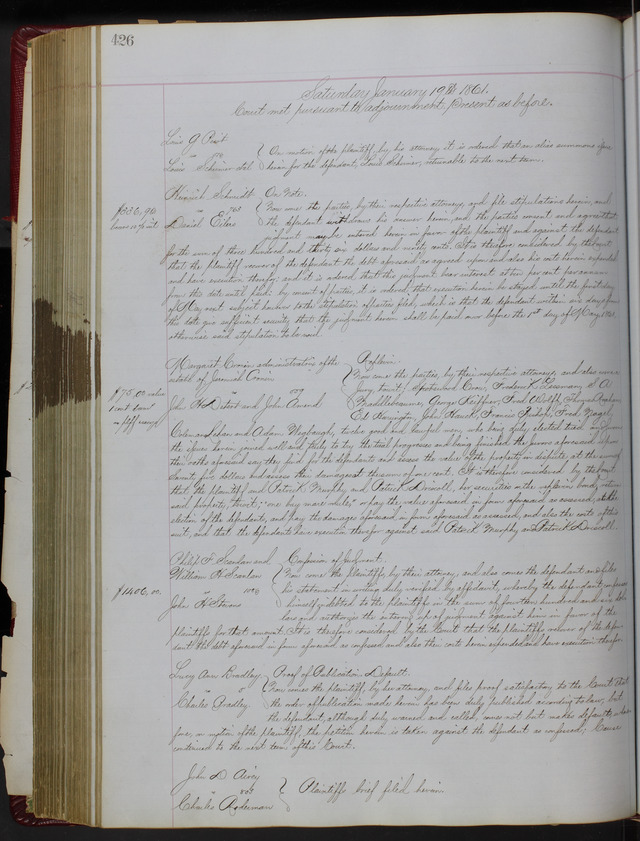 426
Saturday January 19th 1861.
Court met pursuant to adjournment, present as before.
Louis G Picot
On motion of the plaintiff, by his attorney it is ordered that an alias summons issue
herein for the defendant, Louis Schirmer, returnable to the next term.
Heinrich Schmidt On Note.
vs 763 Now come the parties, by their respective attorneys, and file stipulations herein, and
Daniel the defendant withdraws his answer herein, and the parties consent and agree that
$336.90
judgment may be entered herein in favor of the plaintiff and against the defendant
for the sum of three hundred and thirty six dollars and ninety cents. It is therefore considered by the court
that the plaintiff recover of the defendant the debt aforesaid as agreed upon and also his costs herein expended
and have execution therefor; and it is ordered that this judgment bear interest at ten per cent per annum
from this date until paid; by consent of parties, it is ordered, that execution herein be stayed until the first day
of May next, subject however to the stipulation of parties filed, which is that the defendant within six days from
this date give sufficient security that the judgment herein shall be paid on or before the 1st day of May 1861,
otherwise said stipulation to be void.
Margaret Cronin administratrix of the Replevin.
estate of Jeremiah Cronin Now come the parties, by their respective attorneys, and also comes a
vs
John H Dekert and John Amend
$75.00 value
1 cent dam
Jury, to wit, Frederick George Fred Wolff,
Ed Harrington, John Francis Fred Nagel,
Coleman and Adam twelve good and lawful men, who being duly elected tried and sworn
the issue herein joined well and truly to try the trial progresses and being finished the jurors aforesaid upon
their oaths aforesaid say they find for the defendants and assess the value of the property in dispute, at the sum of
Seventy five dollars and assess the damages at the sum of one cent. It is therefore considered by the court
that the plaintiff and Patrick Murphy and Patrick Driscoll, her securities in the replevin bond, return
said property, to wit; "one bay mare mule," or pay the value aforesaid in form aforesaid so assessed, at the
election of the defendants, and pay the damages aforesaid in form aforesaid so assessed, and also the costs of this
suit, and that the defendants have execution therefor against said Patrick Murphy and Patrick Driscoll.
Philip F Scanlan and Confession of Judgment.
William H Scanlan Now come the plaintiffs, by their attorney, and also comes the defendant and files
$1406.00.
his statement in writing duly verified by affidavit, whereby the defendant confesses
John H himself indebted to the plaintiffs in the sum of fourteen hundred and six dol-
lars and authorizes the entering up of judgment against him in favor of the
plaintiffs for that amount. It is therefore considered by the Court that the plaintiffs recover of the defen-
dant the debt aforesaid in form aforesaid so confessed and also their costs herein expended and have execution therefor.
Lucy Ann Bradley Proof of Publication & Default.
vs Now comes the plaintiff, by her attorney, and files proof satisfactory to the Court that
Charles Bradley the order of publication made herein has been duly published according to law; but
the defendant, although duly warned and called, comes not but makes default, where-
fore, on motion of the plaintiff, the petition herein is taken against the defendant as confessed; Cause
continued to the next term of this Court.
John D
vs Plaintiffs brief filed herein
Charles